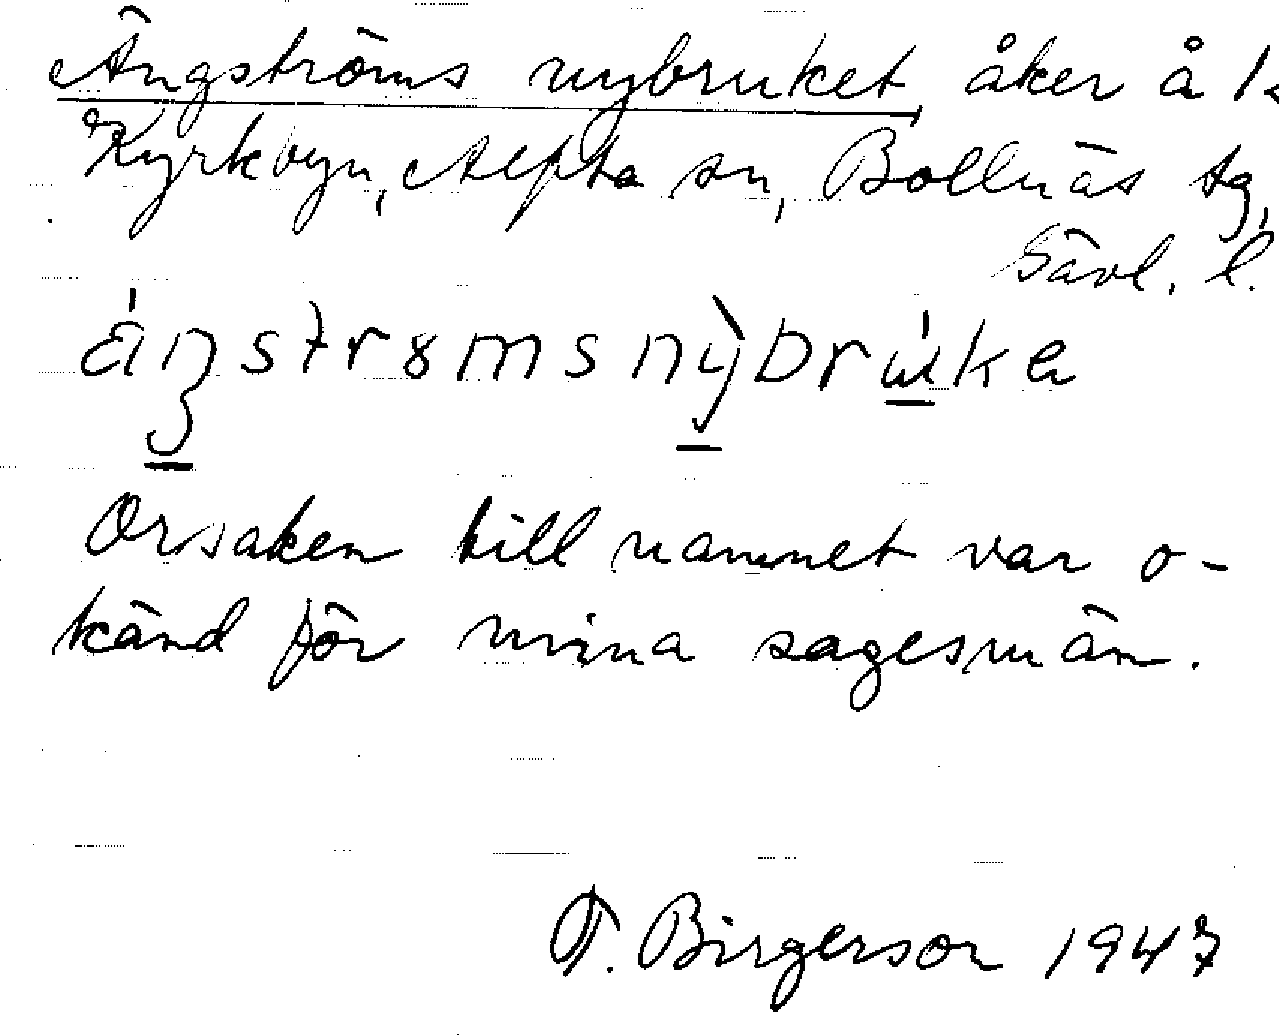 Ängströms nybruket, åker å 1.
Kyrkbyn, Alfta sn, Bollnäs tg,
Gävl. l.
áŋstrømsnỳbrúka
Orsaken till namnet var o-
känd för mina sagesmän.
F. Birgerson 1947